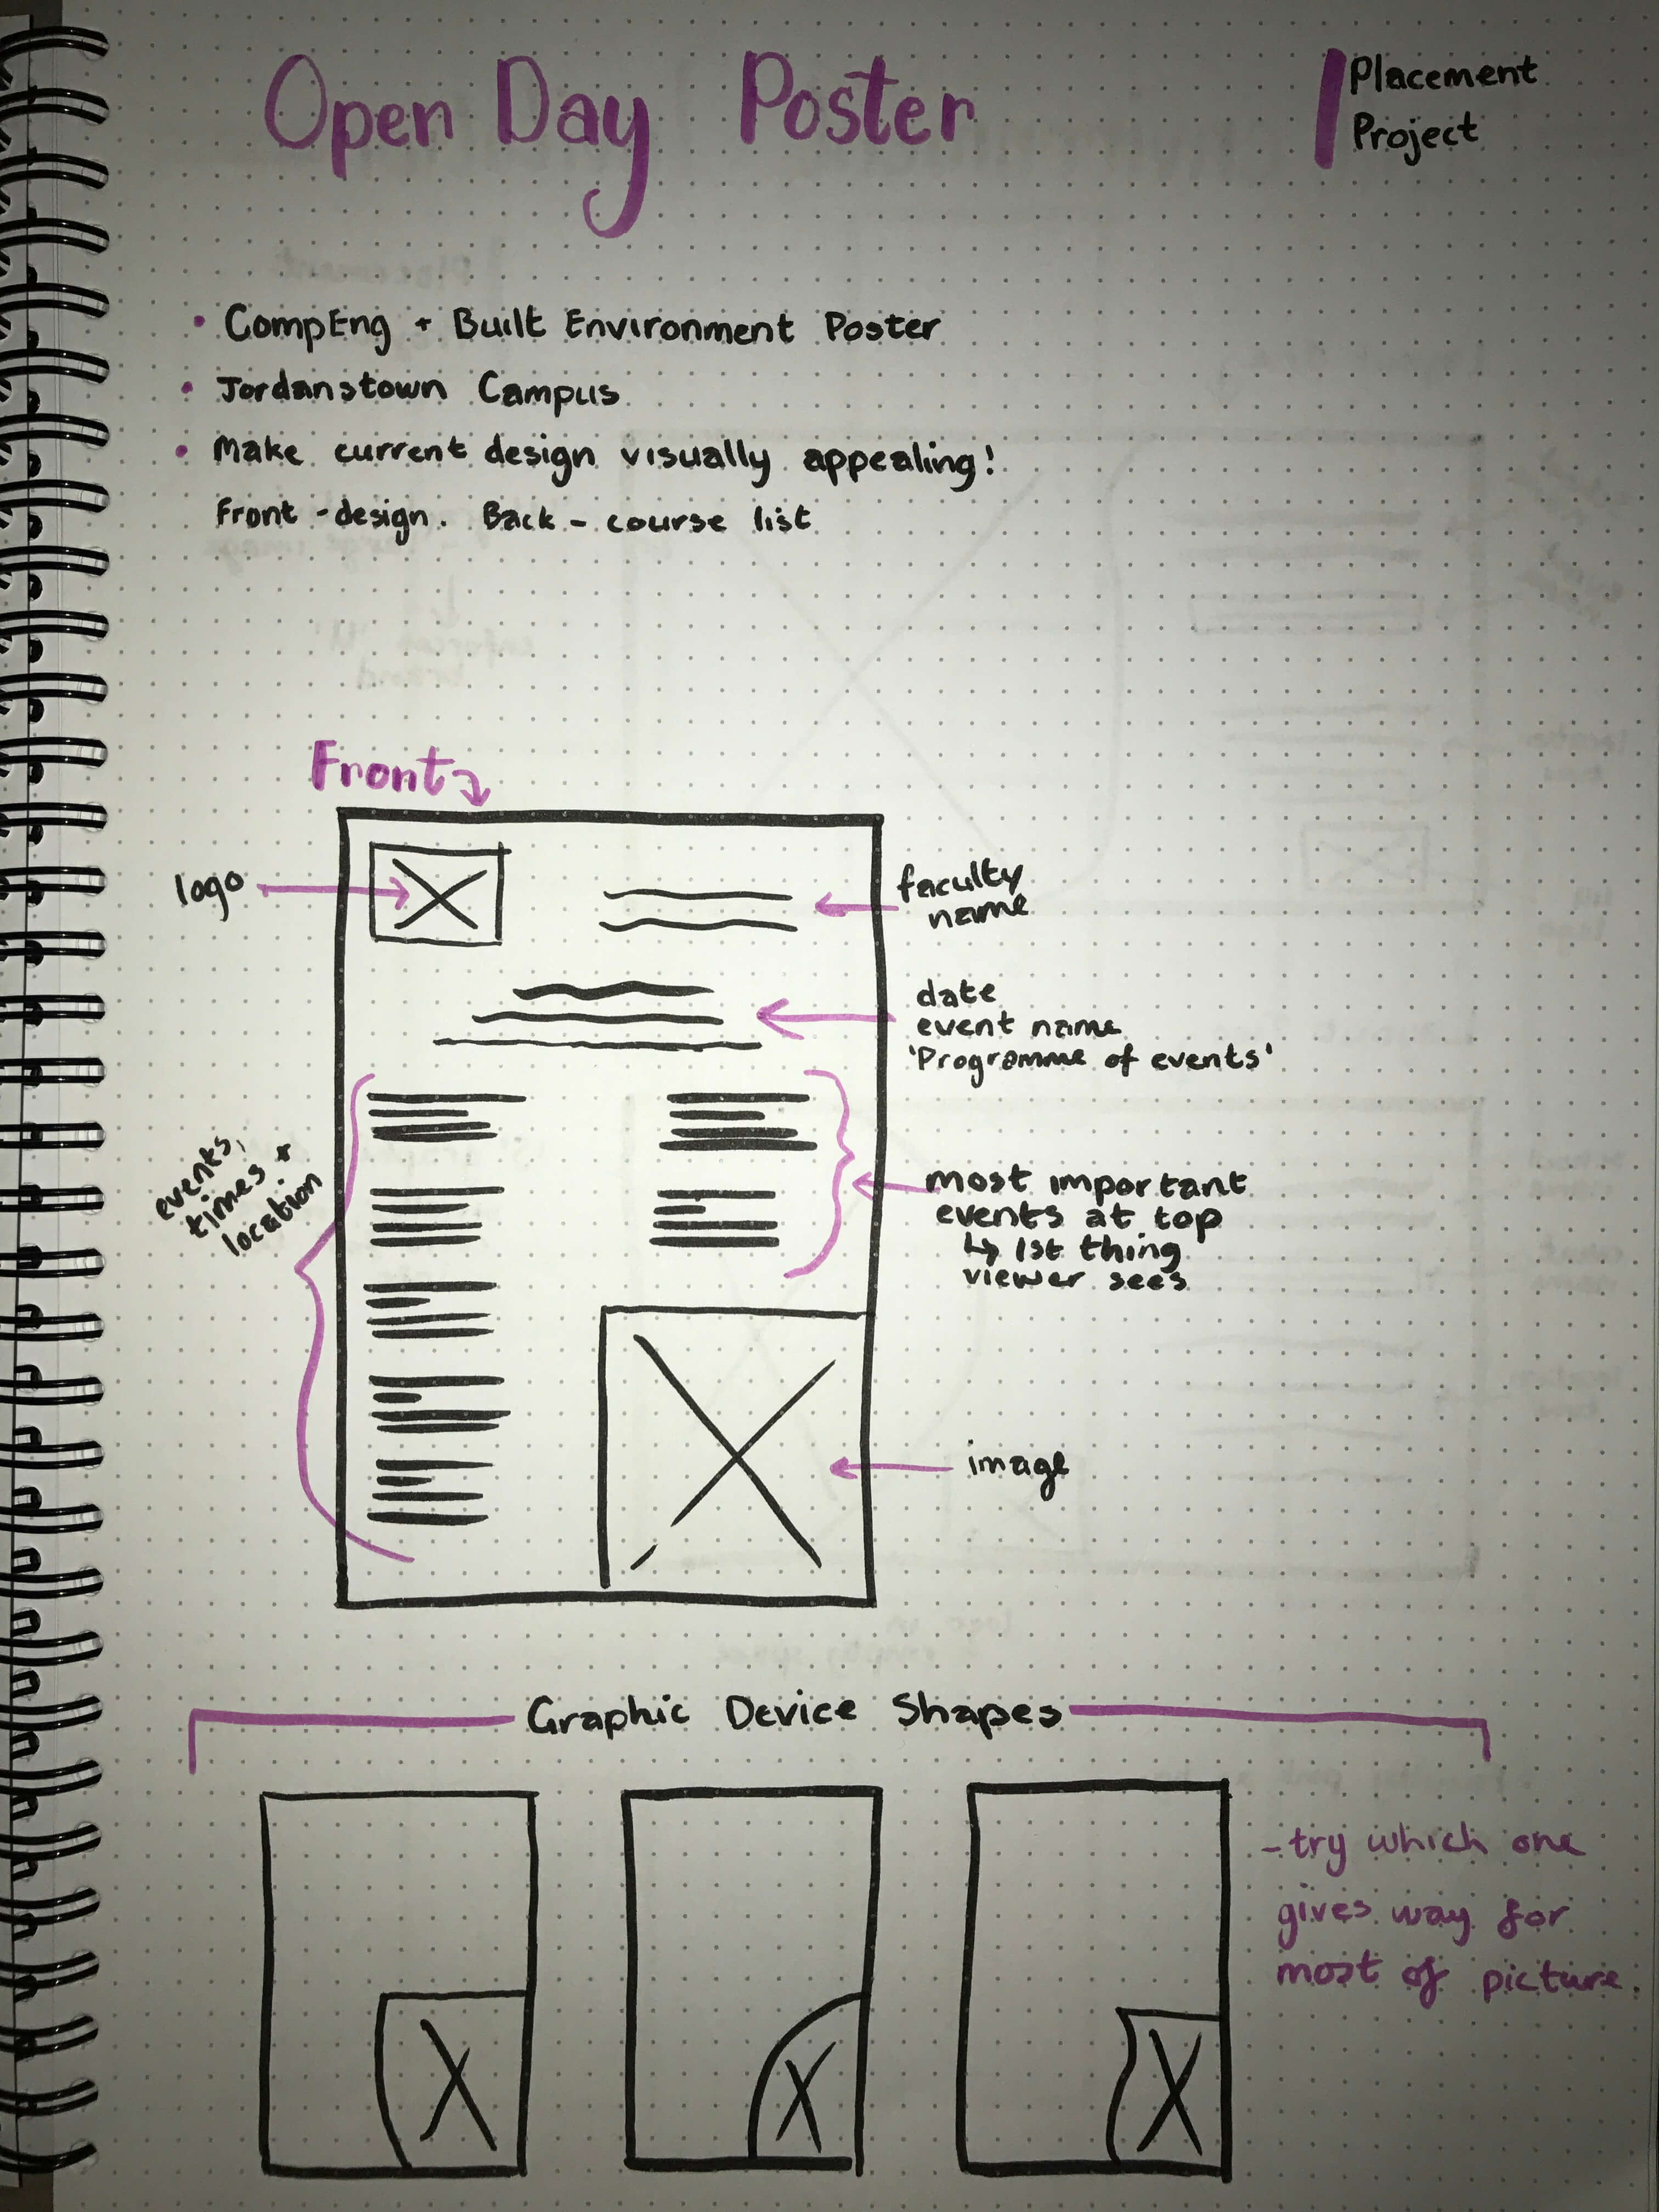 Open Day Poster
Placement
Project
• CompEng + Built Environment Poster
• Jordanstown Campus
• Make current design visually appealing!
Front - design. Back - course list
Front
logo
faculty
name
date
event name
'Programme of events'
events,
times +
location
most important
events at top
↳ 1st thing
viewer sees
image
Graphic Device Shapes
- try which one
gives way for
most of picture.